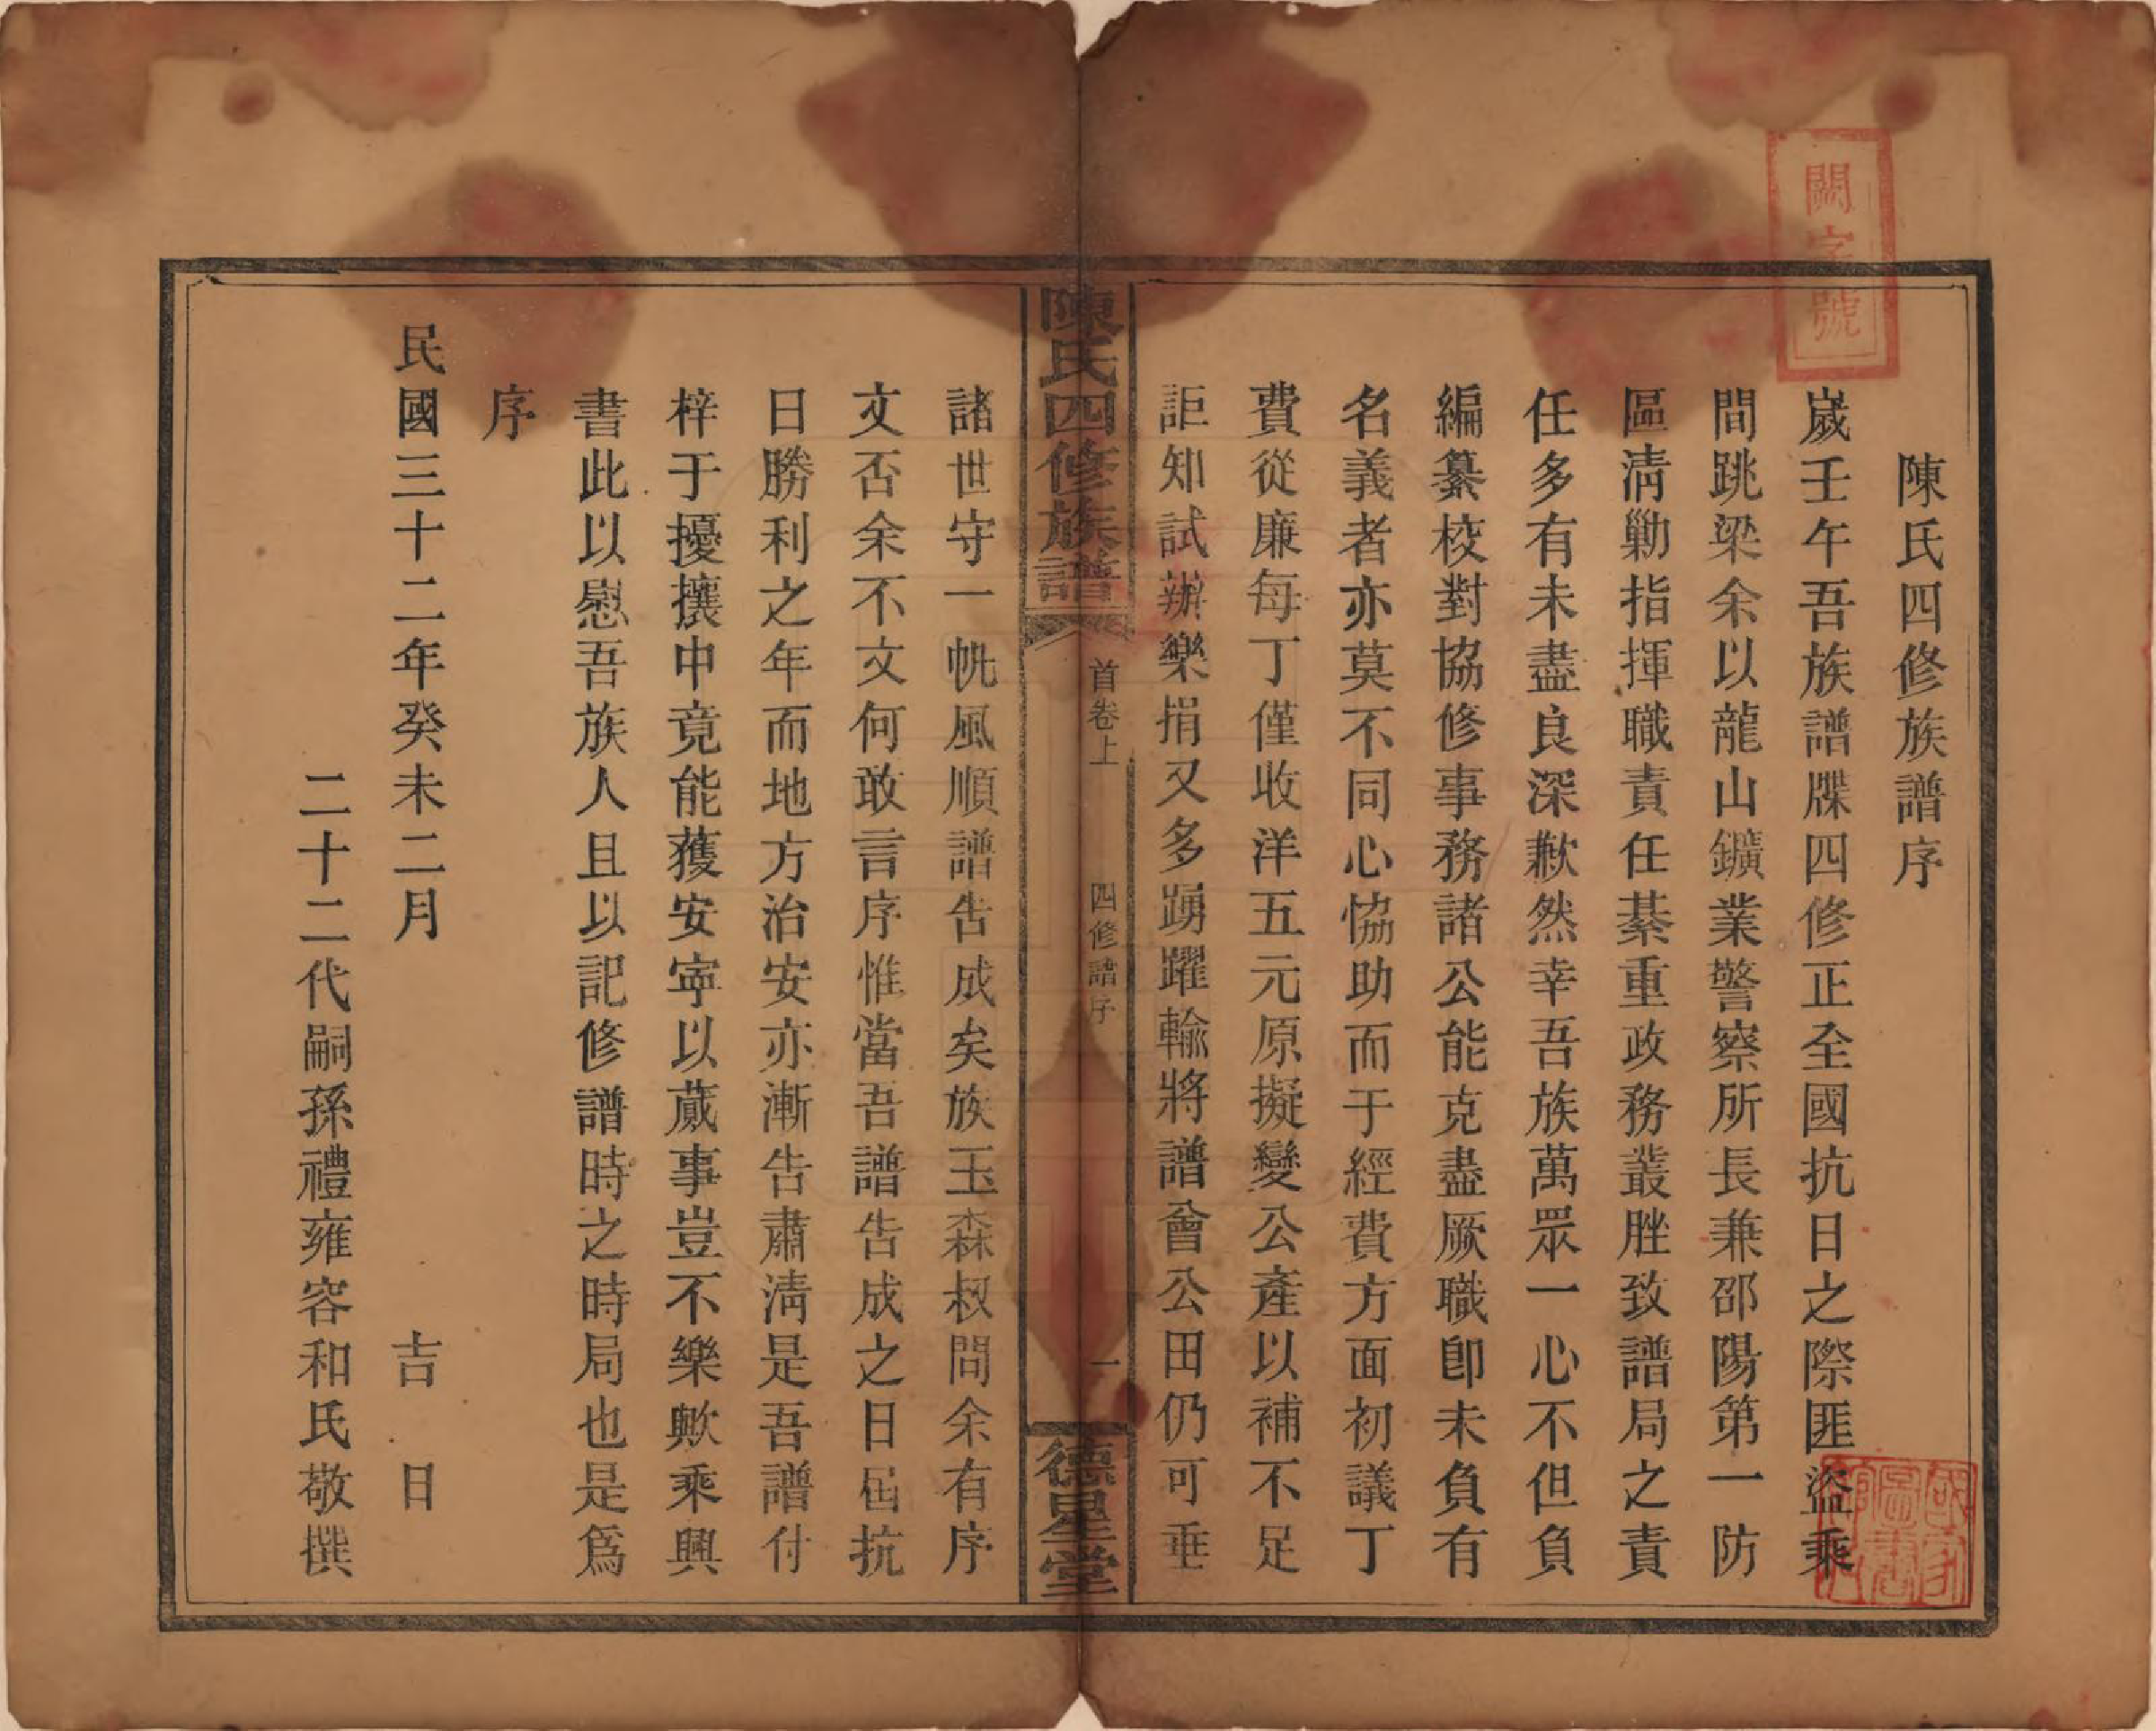 陳氏四修族譜序
歲壬午吾族譜牒四修正全國抗日之際匪盜乘
間跳梁余以龍山鑛業警察所長兼邵陽第一防
區淸勦指揮職責任綦重政務叢脞致譜局之責
任多有未盡良深歉然幸吾族萬眾一心不但負
編纂校對協修事務諸公能克盡厥職卽未負有
名義者亦莫不同心恊助而于經費方面初議丁
費從廉每丁僅收洋五元原擬變公產以補不足
詎知試辦樂捐又多踴躍輸將譜會公田仍可垂
陳氏四修族譜
首卷上
四修譜序
一
德星堂
諸世守一帆風順譜告成矣族玉森叔問余有序
文否余不文何敢言序惟當吾譜告成之日屆抗
日勝利之年而地方治安亦漸告肅淸是吾譜付
梓于擾攘中竟能獲安寧以蕆事豈不樂歟乘興
書此以慰吾族人且以記修譜時之時局也是爲
序
民國三十二年癸未二月 吉日
二十二代嗣孫禮雍容和氏敬撰
闕字號
國家圖書館